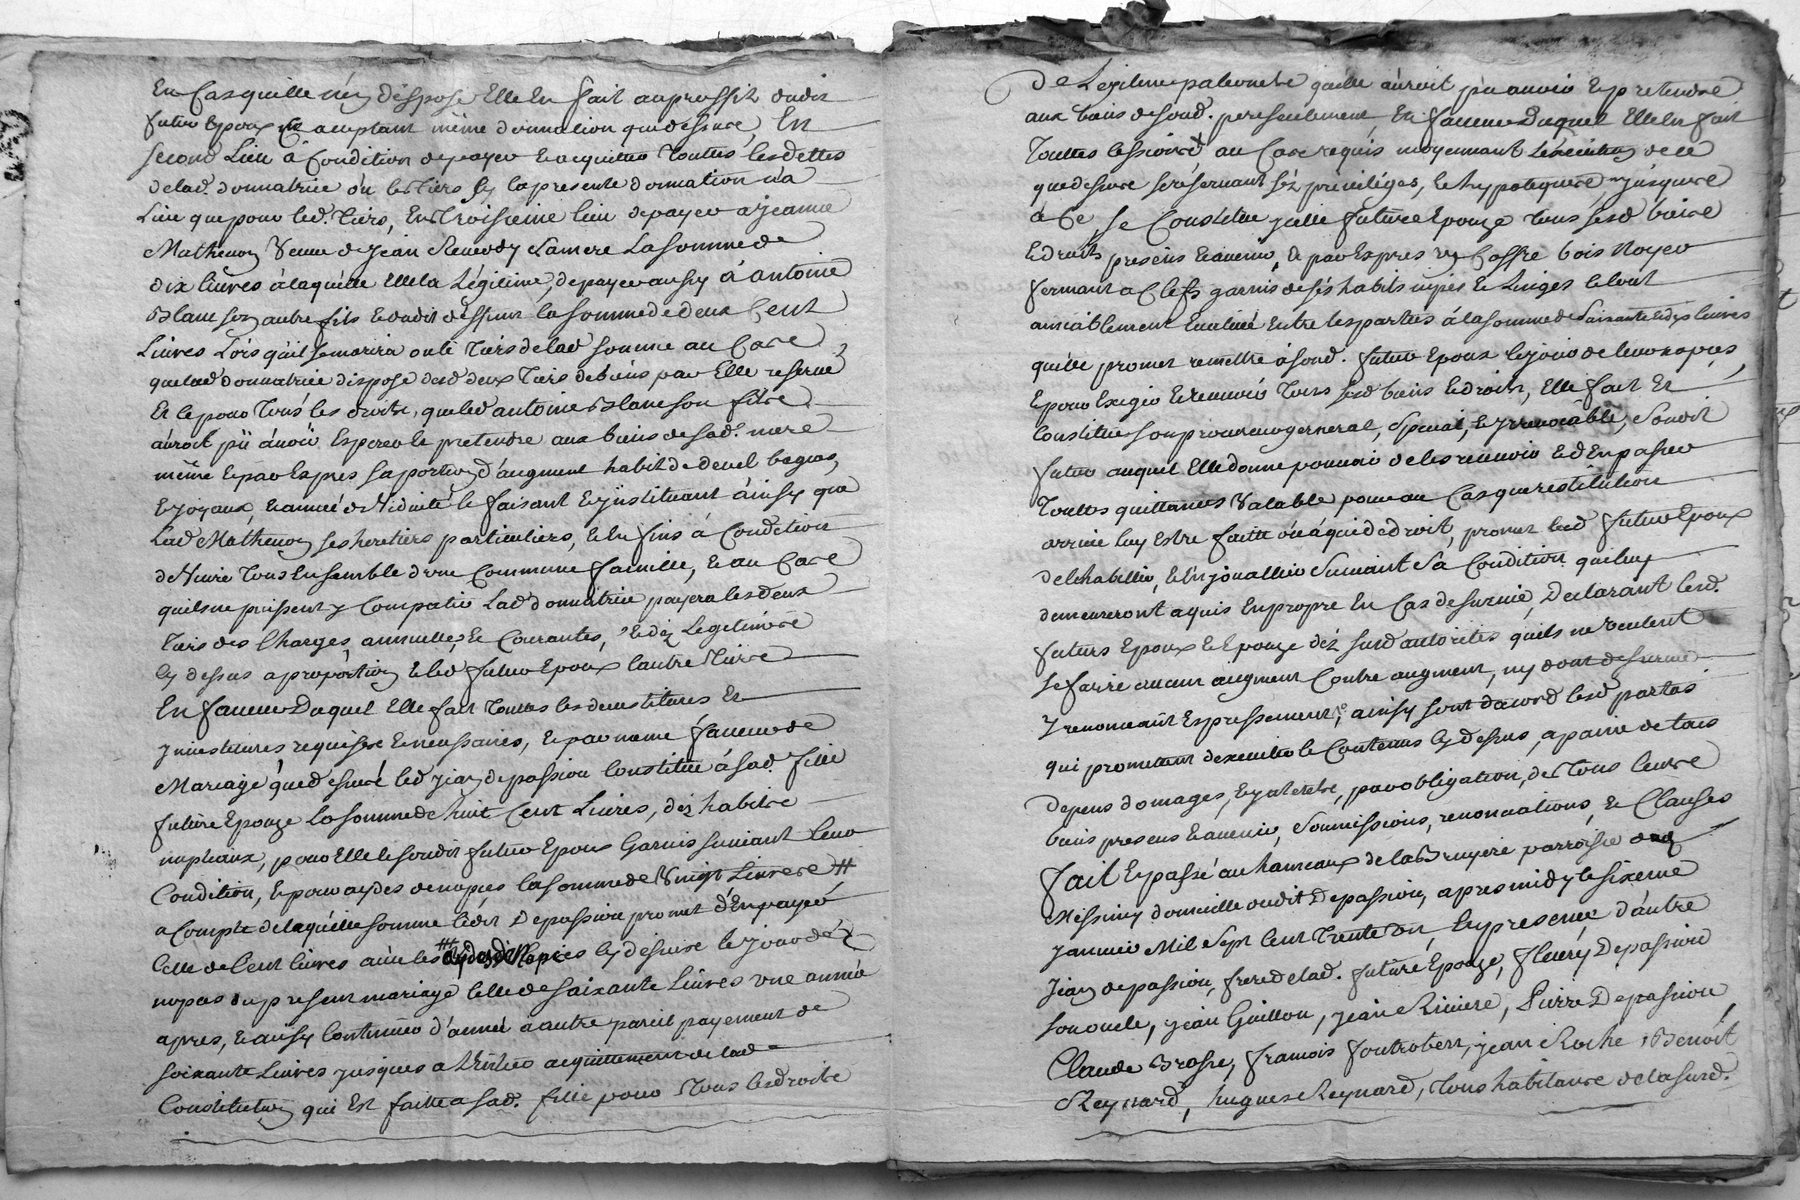 En Cas quelle n'en dispose Elle En fait au proffit dudit
futur Epoux acceptant même donnation que dessure, En
second Lieu à Condition de payer & acquitter Toutes les dettes
de lad. donnatrice ou les Tiers sy la presente donnation n'a
Lieu que pour led. Tiers, En troisieme lieu de payer a Jeanne
Mathevon Veuve de Jean sa mere La somme de
dix livres à laquelle Elle la Légitime, de payer aussy à antoine
Blanc son autre fils & dudit deffunt la somme de deux Cent
Livres Lors quil se marira ou le Tiers de lad somme au Cas
que lad donnatrice dispose desd deux Tiers de biens par Elle reservé
Et ce pour Tous les droits, que led antoine Blanc son filse
auroit pü avoir Esperer & pretendre aux biens de sad. mere
même & par Expres sa portion d'augment habit de deuel bagues,
& joyaux, & année de Viduité le faisant & jnstituant ainsy que
Lad Mathevon ses heretiers particuliers, & En fins à Condition
de Vivre Tous Ensemble d'une Commune famille, & au Case
quils ne puissent y Compatir Lad donnatrice payera les deux
Tiers des Charges annuelles & Courantes, & diz Legitimere
cy dessus a proportion & led futur Epoux l'autre Tierre
En faveur Duquel Elle fait Toutes les devestitures Et
jnvestitures requises & necessaires, & par meme faveur de
Mariage que dessure led jean depassiou Constitue à sad. fille
future Epouze La somme de huit Cent Livres, diz habitre
nuptiaux, pour Elle & soudit futur Epoux Garnis suivant leur
Condition, & pour aydes de nopces la somme de Vingt Livre #
a Compte de laquelle somme ledit Depassiou promet d'En payer
Celle de Cent livres avec les # nopces cy dessure le jour des
nopces du present mariage Celle de soixante Livres une année
apres, & ainsy Continuer d'année à autre pareil payement de
soixante Livres jusques a Entier acquittement de lad
Constitution qui Est faitte a sad. fille pour Tous les droitre
de Légitime paternelle quelle auroit pu avoir & pretendre
aux biens de sond. pere seulement, En faveur Duquel Elle En fait
Touttes cessionne au Case requis moyennant Lexecution de ce
que dessure se reservant ses privileges, & hypotequere jusquere
à Ce Se Constitue jcelle future Epouze Tous sesd biens
& droits presens & avenir, & par Expres un Coffre bois Noyer
fermant a Clefs garnis de ses habits nipes & Linges le tout
amiablement Evalué Entre les parties à la somme de soixante & dix livres
quelle promet remettre à sond. futur Epoux le jour de leur nopces,
& pour Exiger & recevoir Tous sesd biens & droits, Elle fait Et
Constitue son procureur general, special, & jrrevocable, soudit
futur auquel Elle donne pouvoir de les recevoir & d'En passer
Touttes quittances Valable pour au Cas que restitution
arrive luy Estre faitte ou à qui de droit, promet led futur Epoux
de lhabillier, & L'En jouallier suivant Sa Condition que luy
demeureront aquis En propre En Cas de survie, Declarant lesd.
futurs Epoux & Epouze dez susd autorités quils ne veulent
se faire aucun augment Contre augment, ny dont de survie
y renonceant Expressement, ainsy sont d'acord lesd parties
qui promettent dexecuter le Contenus cy dessus, a paine de tous
depens domages, & jnterets, par obligation, des Tous leurre
biens presens & avenir, soumissions, renonciations, & Clauses
fait & passé au hameaux de la Bruyere parroisse de
Messimy domicille dudit Depassiou, apres midy le sixeme
janvier Mil sept Cent Trente En presence d'autre
jean depassiou, frere de lad. future Epouze, fleury Depassiou
son oncle, jean Guillon, jean Riviere, Pierre Depassiou,
Claude Brosse, francois foutrobert, jean Roche, Benoit
Reynard, hugues Reynard, Tous habitanre de lasusd.